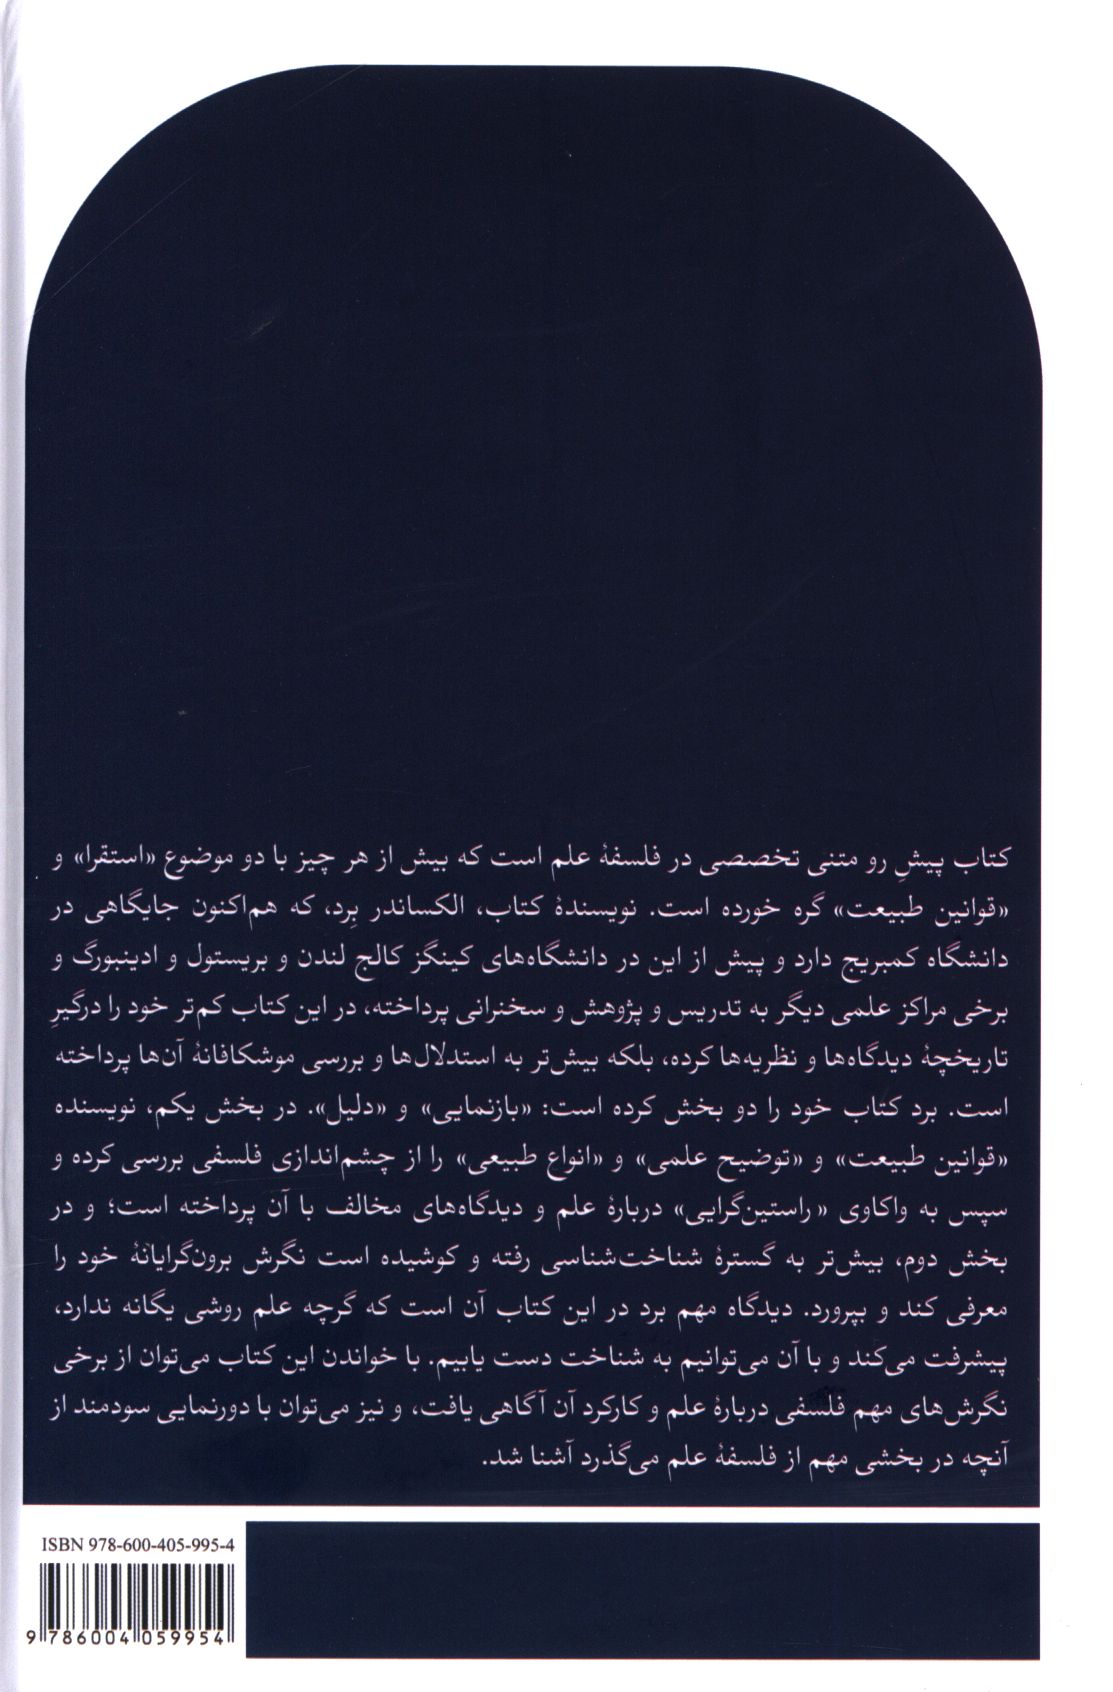 کتاب پیشِ رو متنی تخصصی در فلسفهٔ علم است که بیش از هر چیز با دو موضوع «استقرا» و
«قوانین طبیعت» گره خورده است. نویسندهٔ کتاب، الکساندر بِرد، که هم‌اکنون جایگاهی در
دانشگاه کمبریج دارد و پیش از این در دانشگاه‌های کینگز کالج لندن و بریستول و ادینبورگ و
برخی مراکز علمی دیگر به تدریس و پژوهش و سخنرانی پرداخته، در این کتاب کم‌تر خود را درگیرِ
تاریخچهٔ دیدگاه‌ها و نظریه‌ها کرده، بلکه بیش‌تر به استدلال‌ها و بررسی موشکافانهٔ آن‌ها پرداخته
است. برد کتاب خود را دو بخش کرده است: «بازنمایی» و «دلیل». در بخش یکم، نویسنده
«قوانین طبیعت» و «توضیح علمی» و «انواع طبیعی» را از چشم‌اندازی فلسفی بررسی کرده و
سپس به واکاوی «راستین‌گرایی» دربارهٔ علم و دیدگاه‌های مخالف با آن پرداخته است؛ و در
بخش دوم، بیش‌تر به گسترهٔ شناخت‌شناسی رفته و کوشیده است نگرش برون‌گرایانهٔ خود را
معرفی کند و بپرورد. دیدگاه مهم برد در این کتاب آن است که گرچه علم روشی یگانه ندارد،
پیشرفت می‌کند و با آن می‌توانیم به شناخت دست یابیم. با خواندن این کتاب می‌توان از برخی
نگرش‌های مهم فلسفی دربارهٔ علم و کارکرد آن آگاهی یافت، و نیز می‌توان با دورنمایی سودمند از
آنچه در بخشی مهم از فلسفهٔ علم می‌گذرد آشنا شد.
ISBN 978-600-405-995-4
9 786004 059954